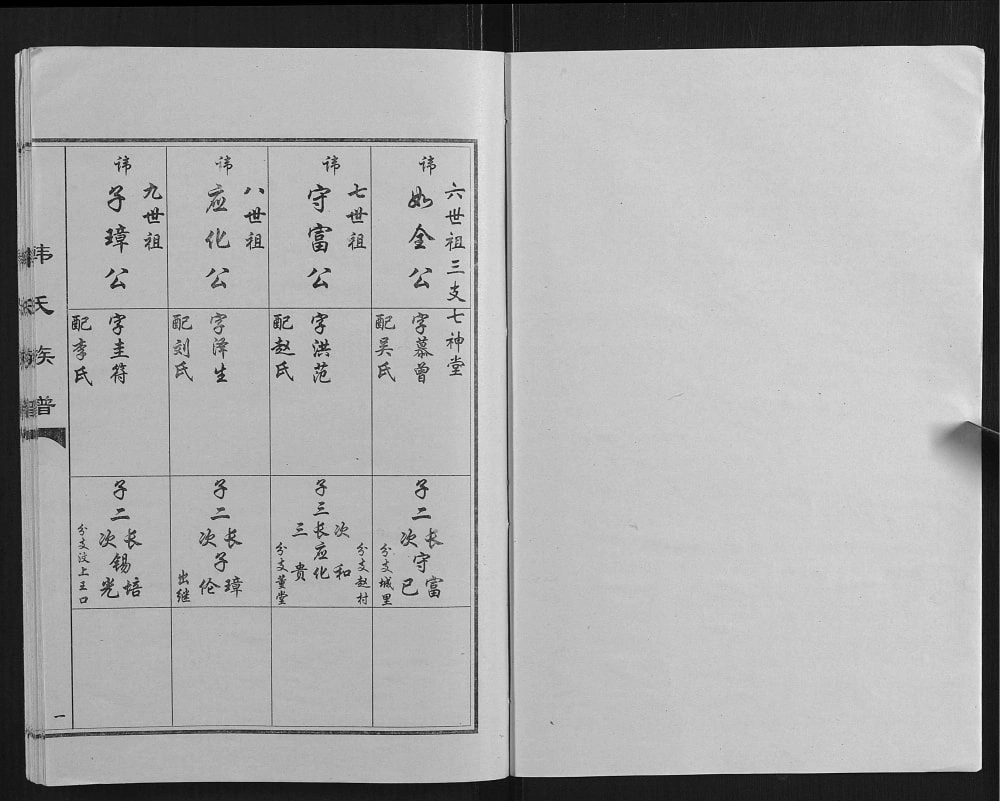 六世祖三支七神堂
讳如全公
字慕曾
配吴氏
子二
长守富
次守已
分支城里
七世祖
讳守富公
字洪范
配赵氏
子三
长应化
次应和
分支赵村
三应贵
分支董堂
八世祖
讳应化公
字泽生
配刘氏
子二
长子璋
次子伦
出继
九世祖
讳子璋公
字圭符
配李氏
子二
长锡培
次锡光
分支汶上王口
韩氏族谱
一